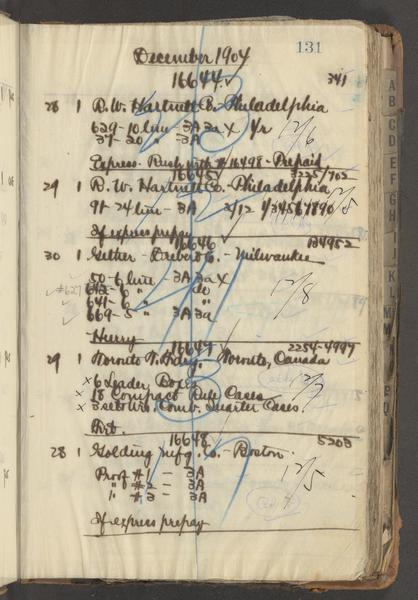 131
December 1904
16644 ✓
341
28 1 R.W. Hartnett Co. - Philadelphia
629 - 10 line - 3A 3a x 4r 12/6
37 - 20 " 3A
Express. Rush with #16498 - Prepaid
16645 3225/702
29 1 R.W. Hartnett Co. - Philadelphia 12/5
91 - 24 line - 3A 3/12 1/34567890
If express prepay
16646 134952
30 1 Gether - Drebert Co. - Milwaukee
50 - 6 line - 3A 3a x 12/8
#627 6 " do
641 - 6 " "
669 - 5 " 3A 3a
Hurry
16647 2254-4999
29 1 Toronto T. Fdry. Toronto, Canada
x 6 Leader Boxes 12/3
x 18 Compact Rule Cases
x 3 sets Wis. Comb. Quarter Cases
Frt.
16648 5203
28 1 Golding Mfg. Co. - Boston
Proof #1 - 3A 12/5
" #2 - 3A
" #3 - 3A
If express prepay
A
B
C
D
E
F
G
H
I
J
K
L
M